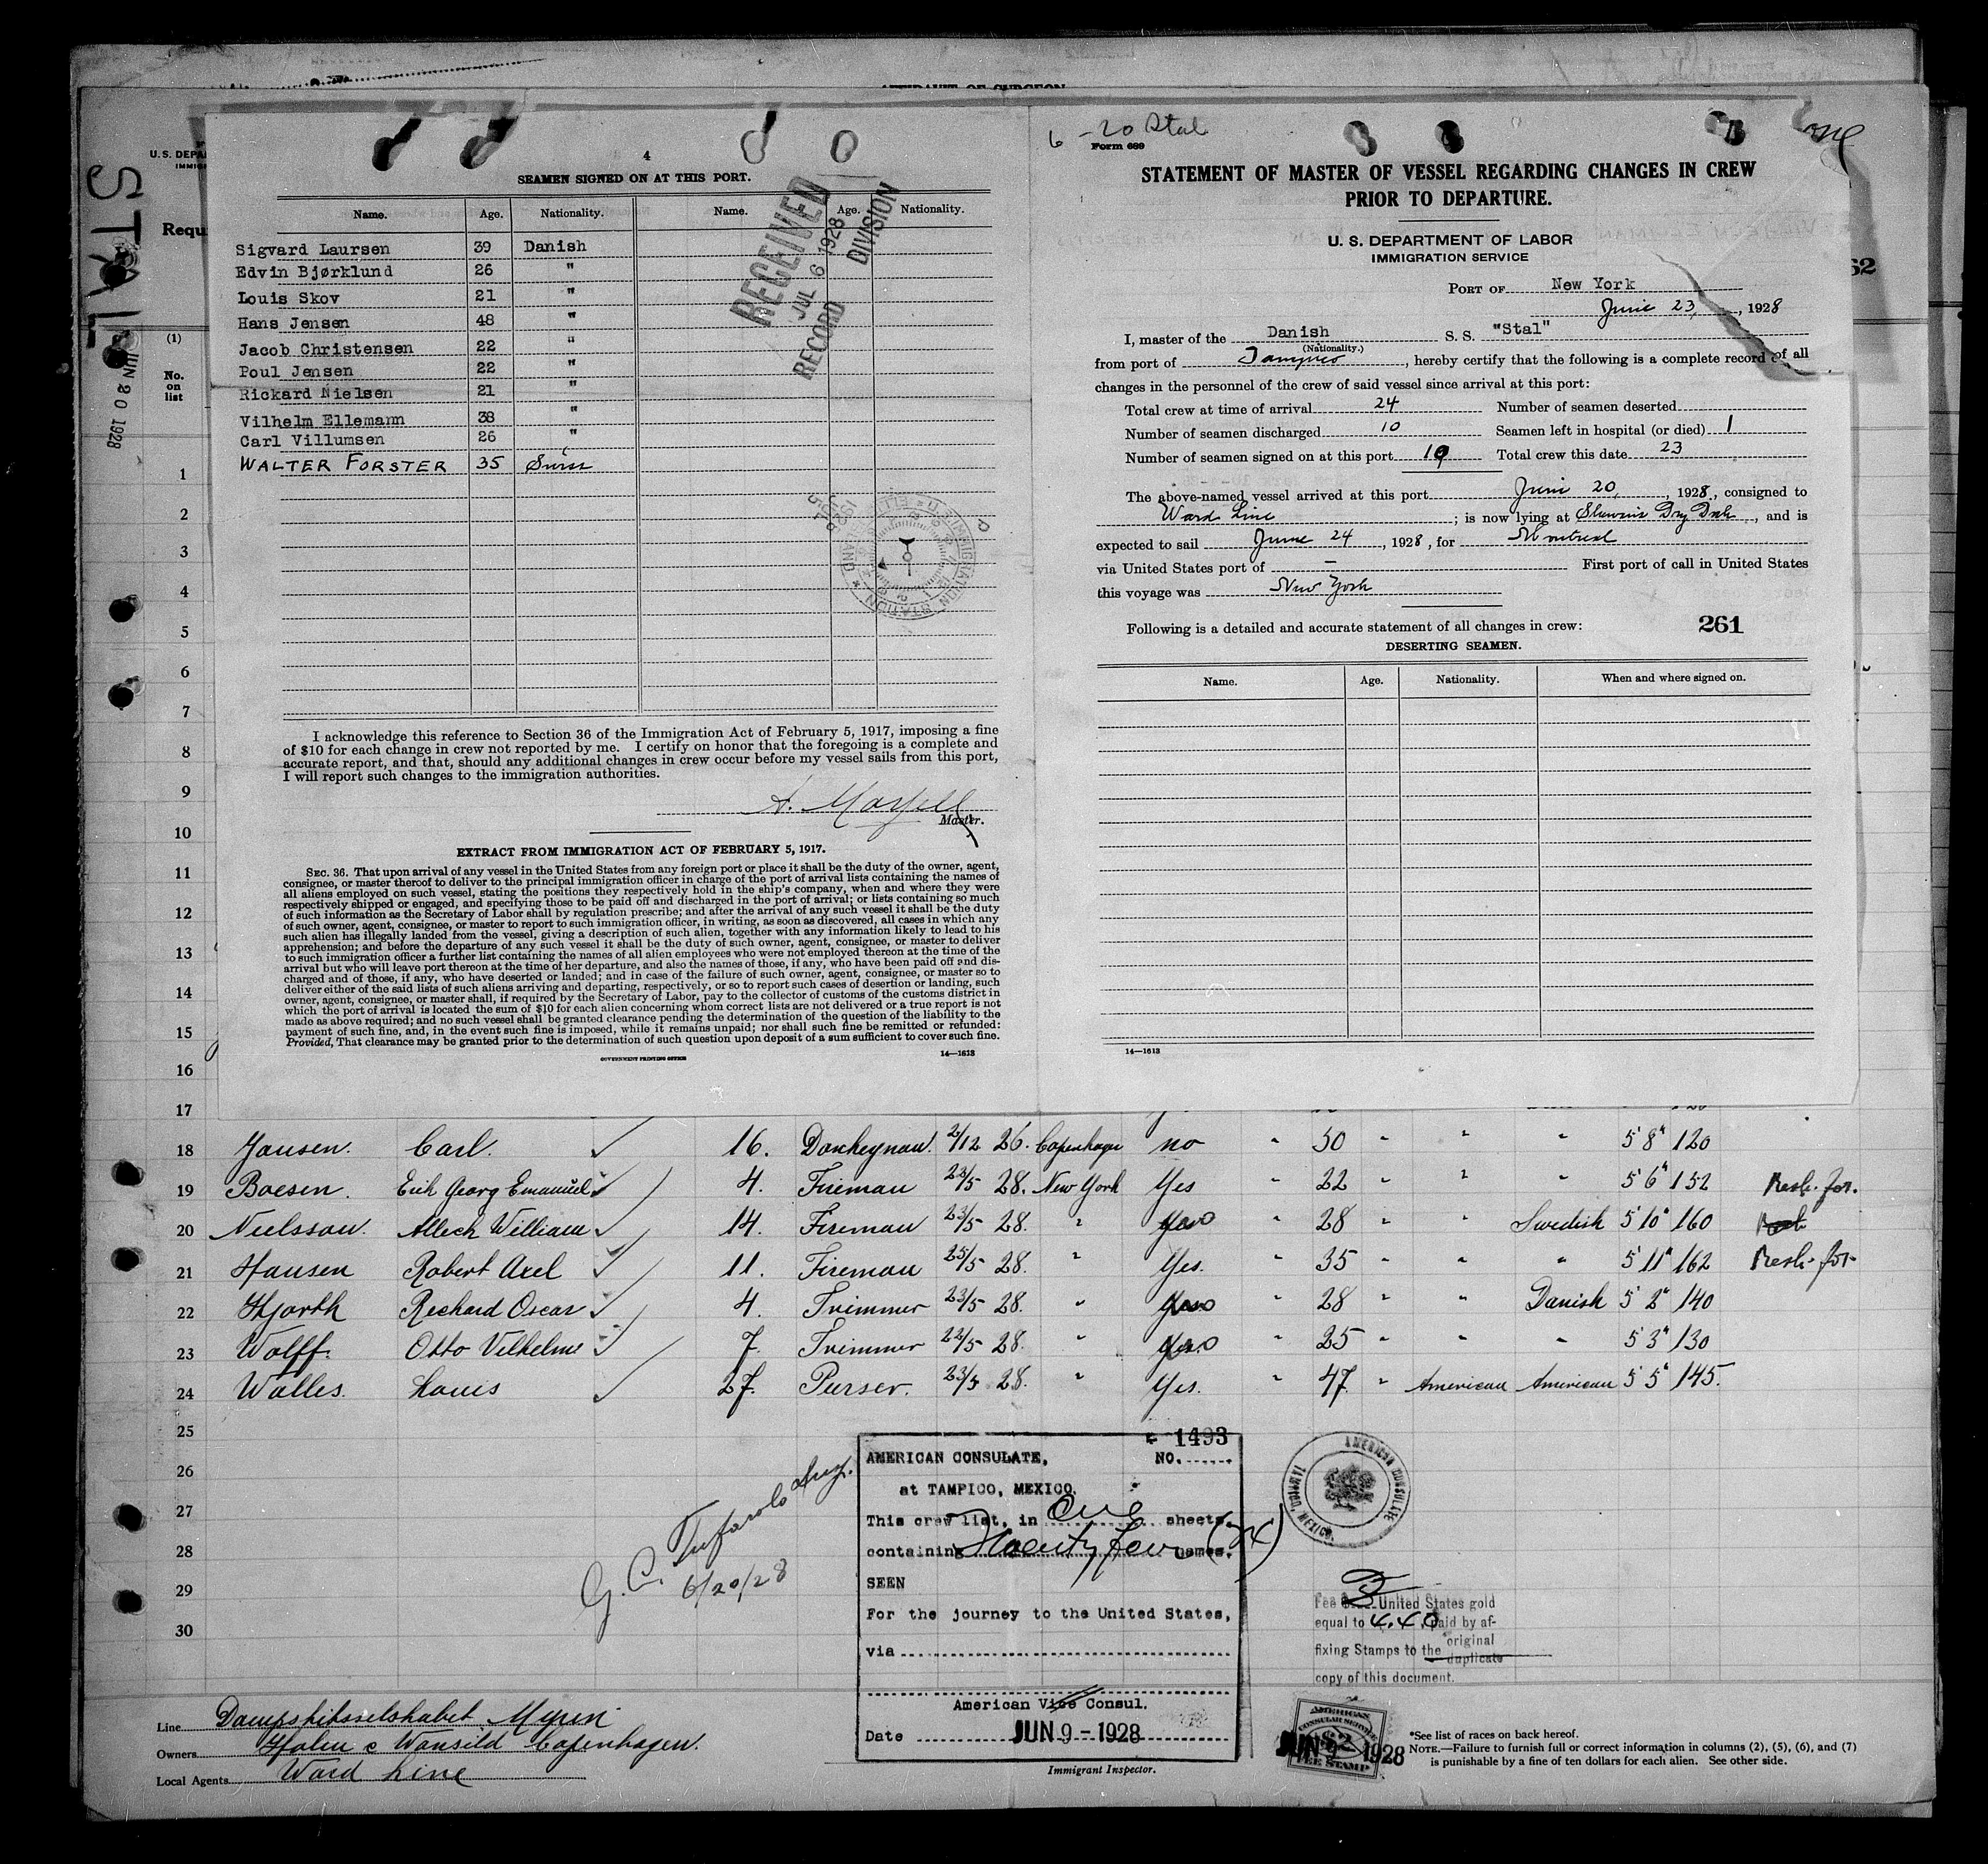 AFFIDAVIT OF SURGEON
U. S. DEPA
IMMIG
STAL
Requ
(1)
No.
on
list
JUN 20 1928
62
4
SEAMEN SIGNED ON AT THIS PORT.
Name. Age. Nationality. Name. Age. Nationality.
Sigvard Laursen 39 Danish
Edvin Bjørklund 26 "
Louis Skov 21 "
Hans Jensen 48 "
Jacob Christensen 22 "
Poul Jensen 22 "
Rickard Nielsen 21 "
Vilhelm Ellemann 38 "
Carl Villumsen 26 "
WALTER FORSTER 35 Swiss
RECEIVED
JUL 6 1928
RECORD DIVISION
U.S. IMMIGRATION STATION
I acknowledge this reference to Section 36 of the Immigration Act of February 5, 1917, imposing a fine
of $10 for each change in crew not reported by me. I certify on honor that the foregoing is a complete and
accurate report, and that, should any additional changes in crew occur before my vessel sails from this port,
I will report such changes to the immigration authorities.
Master.
EXTRACT FROM IMMIGRATION ACT OF FEBRUARY 5, 1917.
SEC. 36. That upon arrival of any vessel in the United States from any foreign port or place it shall be the duty of the owner, agent,
consignee, or master thereof to deliver to the principal immigration officer in charge of the port of arrival lists containing the names of
all aliens employed on such vessel, stating the positions they respectively hold in the ship's company, when and where they were
respectively shipped or engaged, and specifying those to be paid off and discharged in the port of arrival; or lists containing so much
of such information as the Secretary of Labor shall by regulation prescribe; and after the arrival of any such vessel it shall be the duty
of such owner, agent, consignee, or master to report to such immigration officer, in writing, as soon as discovered, all cases in which any
such alien has illegally landed from the vessel, giving a description of such alien, together with any information likely to lead to his
apprehension; and before the departure of any such vessel it shall be the duty of such owner, agent, consignee, or master to deliver
to such immigration officer a further list containing the names of all alien employees who were not employed thereon at the time of the
arrival but who will leave port thereon at the time of her departure, and also the names of those, if any, who have been paid off and dis-
charged and of those, if any, who have deserted or landed; and in case of the failure of such owner, agent, consignee, or master so to
deliver either of the said lists of such aliens arriving and departing, respectively, or so to report such cases of desertion or landing, such
owner, agent, consignee, or master shall, if required by the Secretary of Labor, pay to the collector of customs of the customs district in
which the port of arrival is located the sum of $10 for each alien concerning whom correct lists are not delivered or a true report is not
made as above required; and no such vessel shall be granted clearance pending the determination of the question of the liability to the
payment of such fine, and, in the event such fine is imposed, while it remains unpaid; nor shall such fine be remitted or refunded:
Provided, That clearance may be granted prior to the determination of such question upon deposit of a sum sufficient to cover such fine.
GOVERNMENT PRINTING OFFICE 14—1613
6-20 Stal
Form 689
STATEMENT OF MASTER OF VESSEL REGARDING CHANGES IN CREW
PRIOR TO DEPARTURE.
U. S. DEPARTMENT OF LABOR
IMMIGRATION SERVICE
PORT OF New York
June 23, 1928
I, master of the Danish S. S. "Stal"
(Nationality.)
from port of Tampico, hereby certify that the following is a complete record of all
changes in the personnel of the crew of said vessel since arrival at this port:
Total crew at time of arrival 24 Number of seamen deserted
Number of seamen discharged 10 Seamen left in hospital (or died) 1
Number of seamen signed on at this port 10 Total crew this date 23
The above-named vessel arrived at this port June 20, 1928, consigned to
Ward Line; is now lying at Shewans Dry Dock, and is
expected to sail June 24, 1928, for Montreal
via United States port of — First port of call in United States
this voyage was New York
Following is a detailed and accurate statement of all changes in crew: 261
DESERTING SEAMEN.
Name. Age. Nationality. When and where signed on.
14—1613
1
2
3
4
5
6
7
8
9
10
11
12
13
14
15
16
17
18 Jansen. Carl. 16. Donkeyman. 2/12 26. Copenhagen no " 50 " " " 5 8" 120
19 Boesen. Erik Georg Emanuel 4. Fireman 23/5 28. New York Yes " 22 " " " 5 6" 152
20 Nielsson. Alleck William 14. Fireman 23/5 28. " " 28 " " Swedish 5 10" 160
21 Hansen Robert Axel 11. Fireman 25/5 28. " Yes. " 35 " " " 5 11" 162
22 Hjorth Rechard Oscar 4. Trimmer 23/5 28. " " 28 " " Danish 5 2" 140
23 Wolff. Otto Vilhelm 7. Trimmer 22/5 28. " " 25 " " " 5 3" 130
24 Walles. Louis 27. Purser. 23/5 28. " Yes. " 47 " American American 5 5" 145.
25
26
27
28
29
30
6/20/28
1493
AMERICAN CONSULATE, NO.
at TAMPICO, MEXICO.
This crew list, in One sheets,
containing Twenty four names. (24)
SEEN
For the journey to the United States,
via
American Vice Consul.
Date JUN 9 - 1928
Immigrant Inspector.
AMERICAN CONSULATE TAMPICO, MEXICO.
Fee United States gold
equal to 4.40 paid by af-
fixing Stamps to the original
duplicate
copy of this document.
AMERICAN
CONSULAR SERVICE
$2
FEE STAMP
JUN 9 1928
Line Dampskibsselskabet Myren
Owners Holm & Wonsild Copenhagen.
Local Agents Ward Line
*See list of races on back hereof.
NOTE.—Failure to furnish full or correct information in columns (2), (5), (6), and (7)
is punishable by a fine of ten dollars for each alien. See other side.